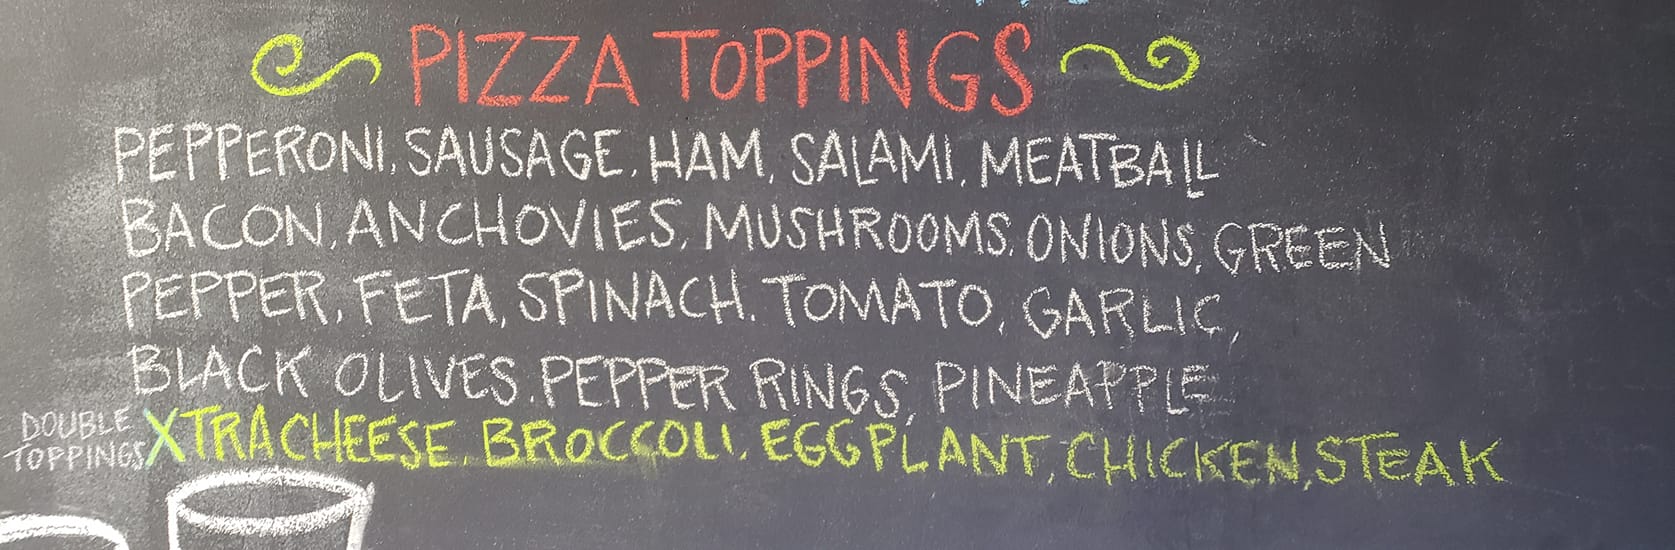 PIZZA TOPPINGS
PEPPERONI, SAUSAGE, HAM, SALAMI, MEATBALL
BACON, ANCHOVIES, MUSHROOMS, ONIONS, GREEN
PEPPER, FETA, SPINACH, TOMATO, GARLIC,
BLACK OLIVES, PEPPER RINGS, PINEAPPLE
DOUBLE
TOPPINGS XTRA CHEESE, BROCCOLI, EGGPLANT, CHICKEN, STEAK